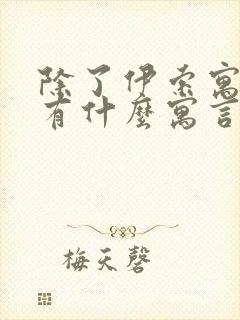 除了伊索寓
有什麼寓言
梅天磬